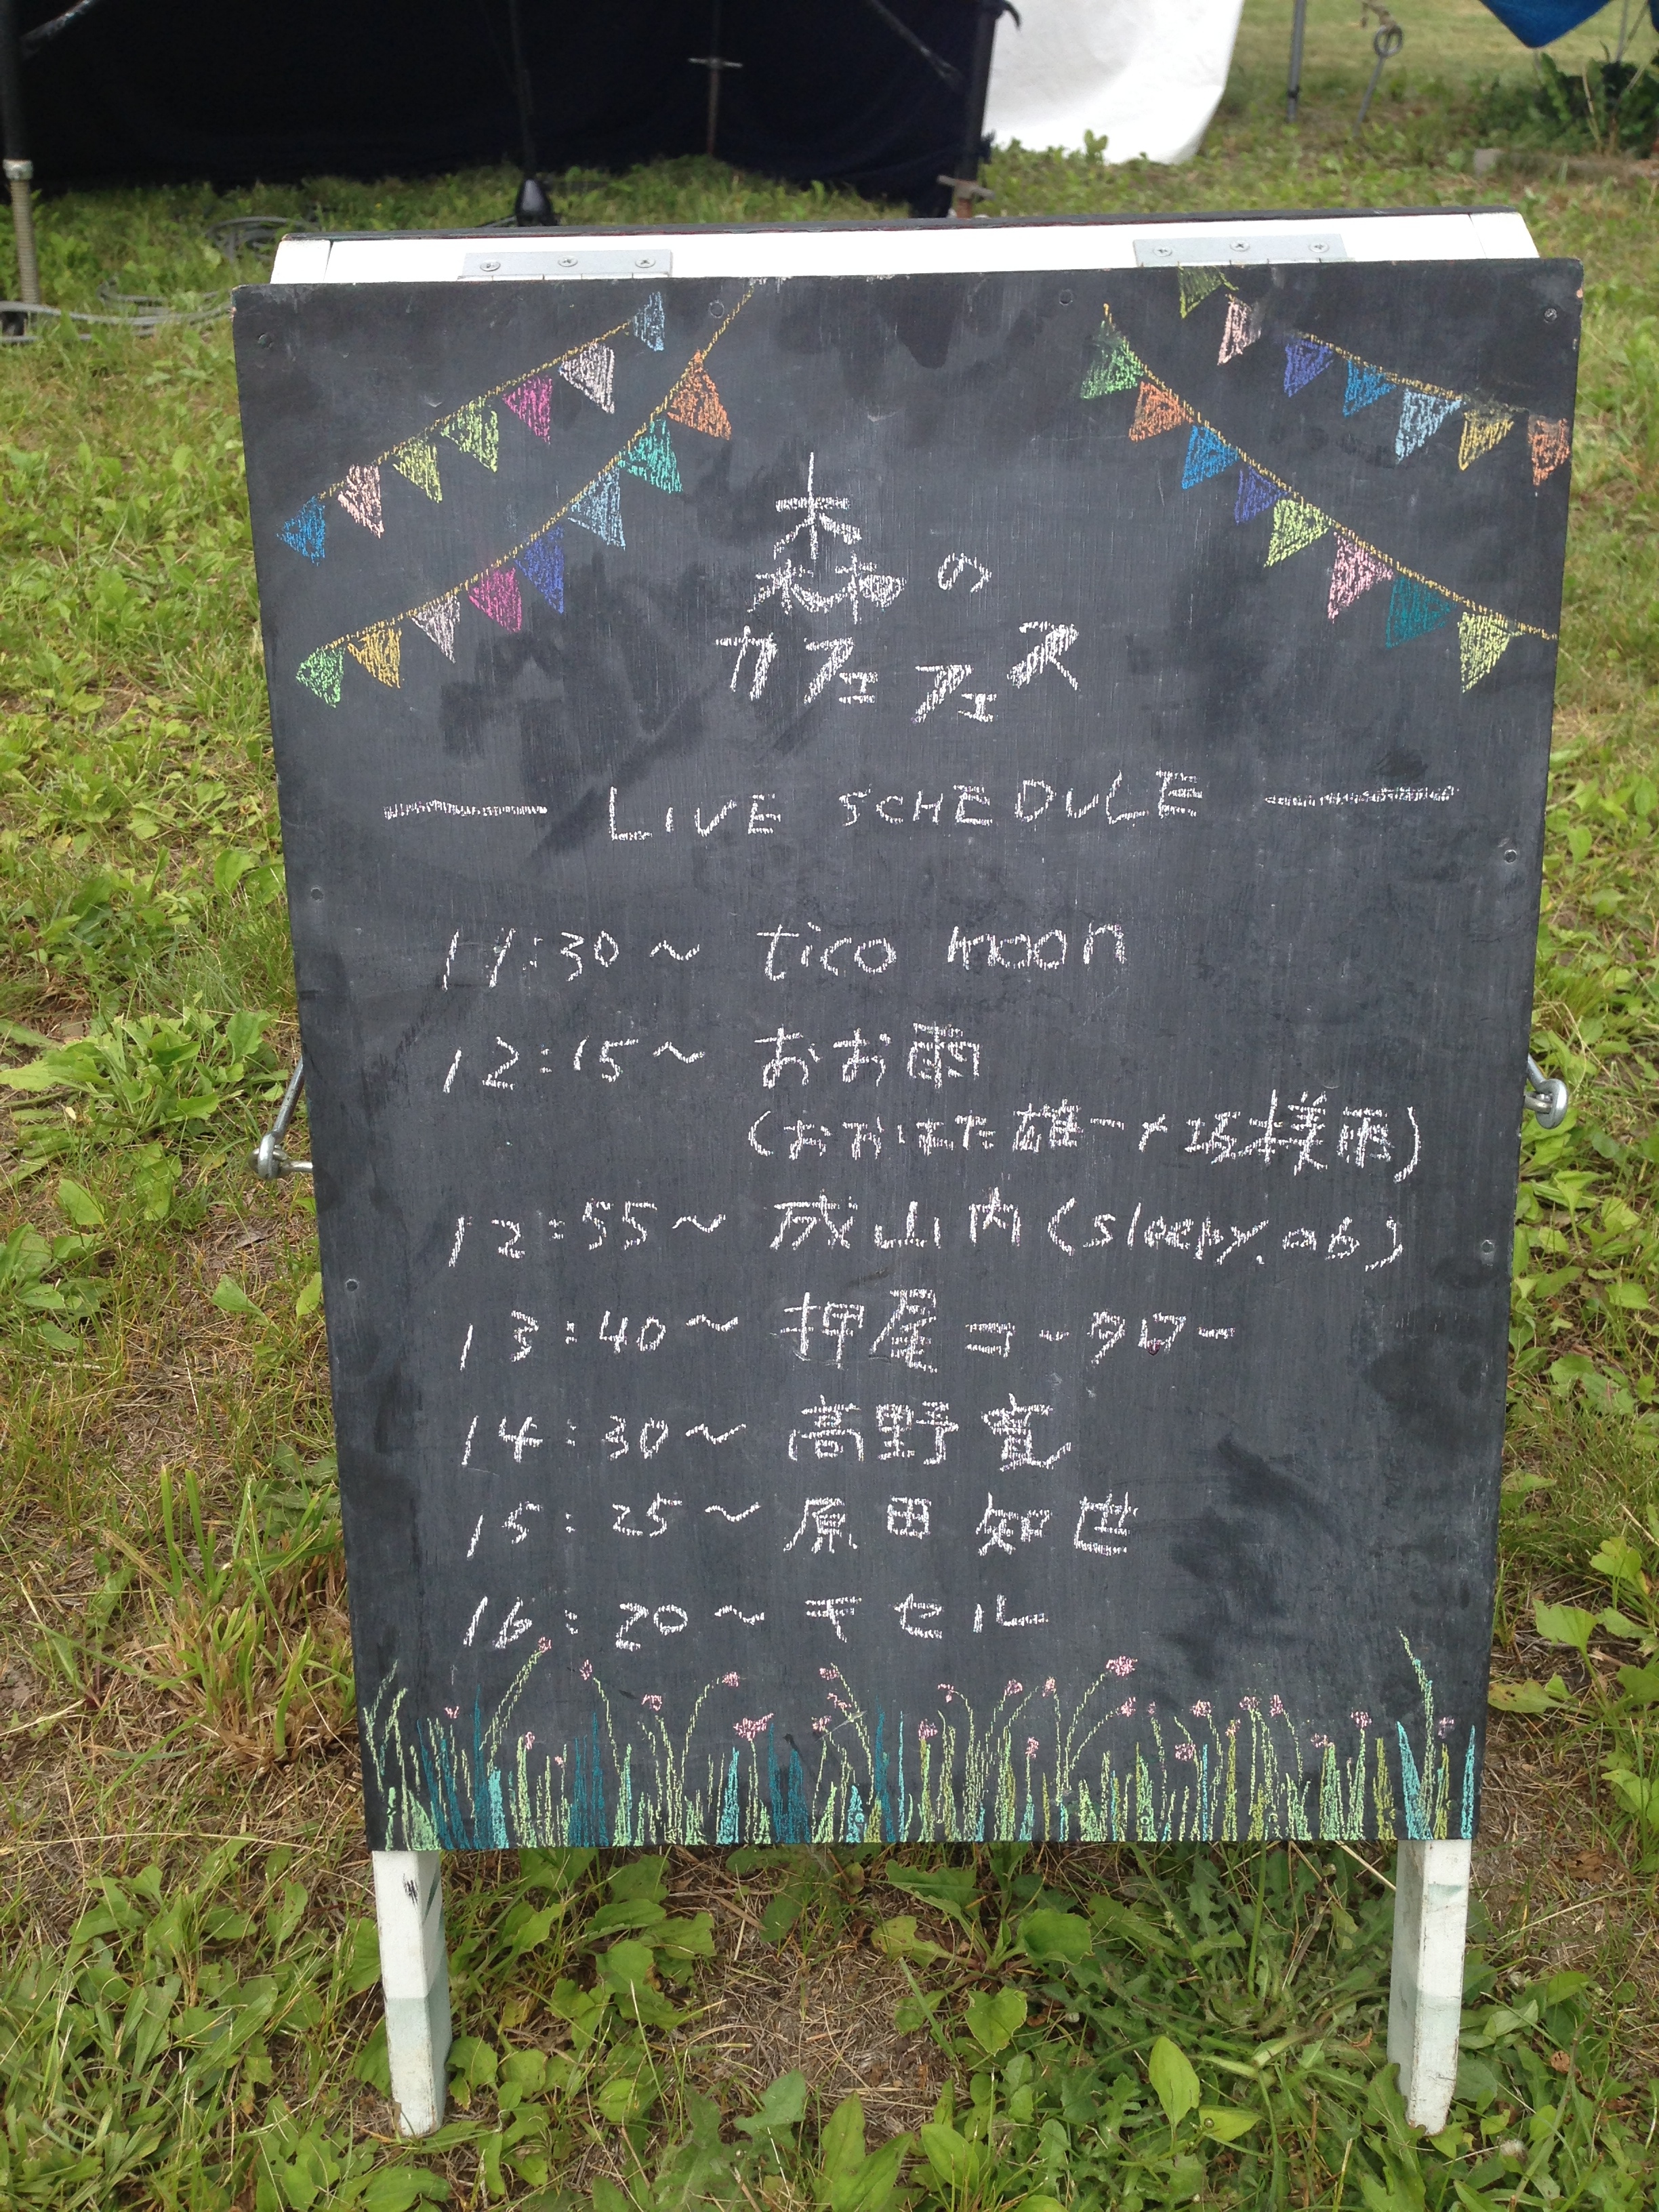 森の
カフェフェス
LIVE SCHEDULE
11:30〜 tico moon
12:15〜 おお雨
(おおはた雄一×坂本美雨)
12:55〜 成山内(sleepy.ab)
13:40〜 押尾コータロー
14:30〜 高野寛
15:25〜 原田知世
16:20〜 キセル